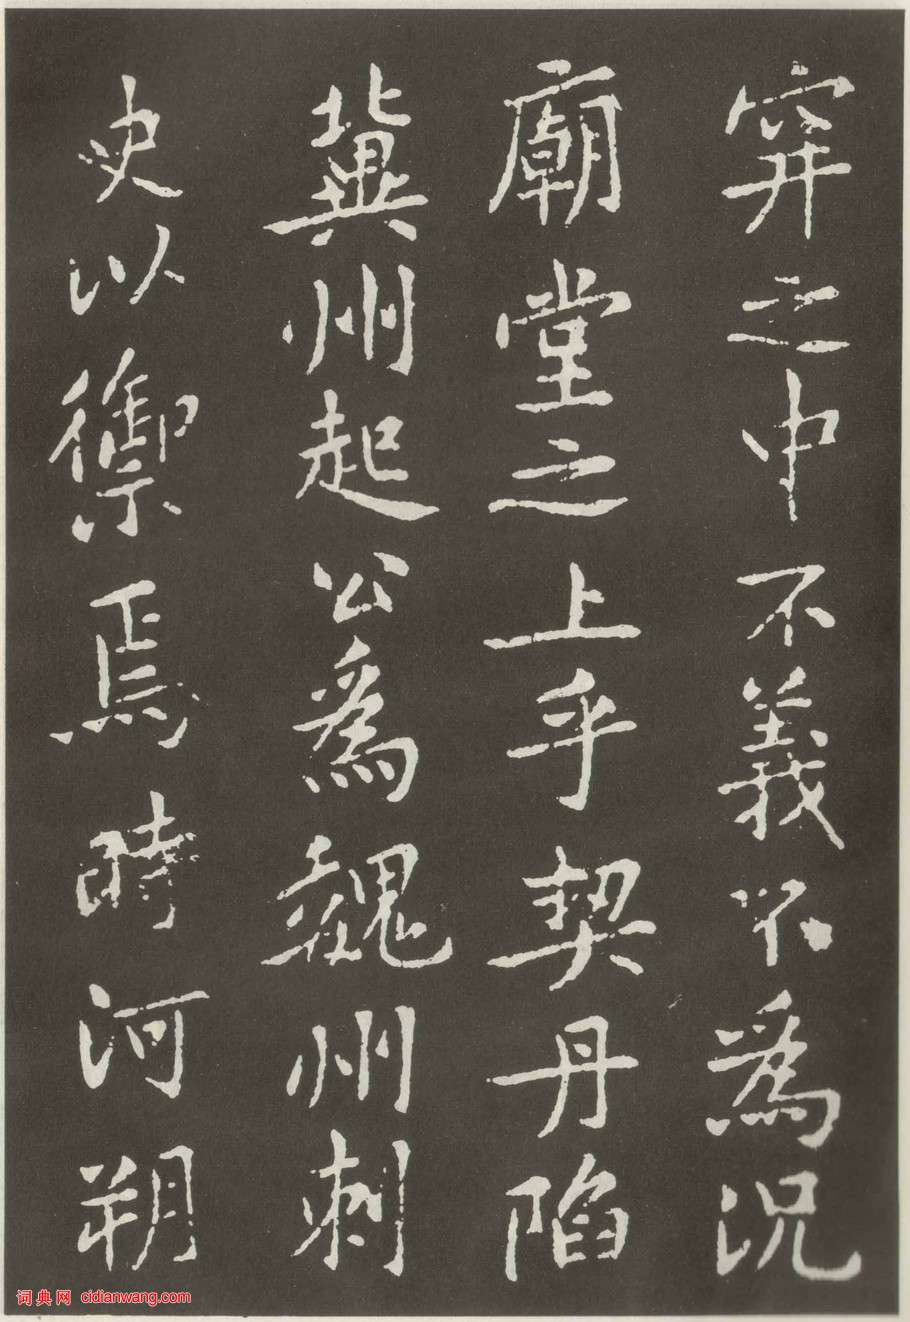 穽之中不義不為況
廟堂之上乎契丹陷
冀州起公為魏州刺
史以禦焉時河朔
词典网 cidianwang.com